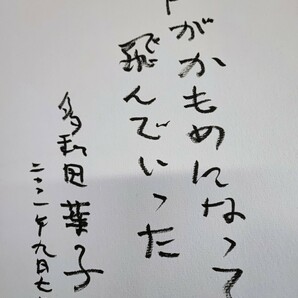 がかもめになって
飛んでいった
多和田葉子
二〇二一年九月七